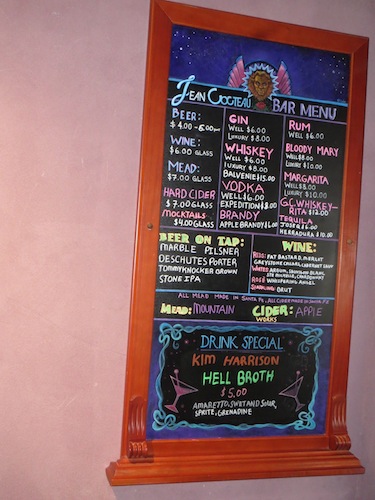 Jean Cocteau BAR MENU
BEER:
$4.00-6.00
WINE:
$6.00 GLASS
MEAD:
$7.00 GLASS
HARD CIDER
$7.00 GLASS
MOCKTAILS
$4.00 GLASS
GIN
WELL $6.00
LUXURY $8.00
WHISKEY
WELL $6.00
LUXURY $8.00
BALVENIE $15.00
VODKA
WELL $6.00
EXPEDITION $8.00
BRANDY
APPLE BRANDY $6.00
RUM
WELL $6.00
BLOODY MARY
WELL $8.00
LUXURY $10.00
MARGARITA
WELL $8.00
LUXURY $10.00
G.C. WHISKEY-
RITA $12.00
TEQUILA
JOSE $6.00
HERRADURA $10.00
BEER ON TAP:
MARBLE PILSNER
DESCHUTES PORTER
TOMMYKNOCKER BROWN
STONE IPA
WINE:
REDS: FAT BASTARD, MERLOT
GREYSTONE CELLARS, CABERNET SAUV
WHITES
STE MICHELLE, CHARDONNAY
ROSÉ WHISPERING ANGEL
SPARKLING BRUT
ALL MEAD MADE IN SANTA FE, ALL CIDER MADE IN SANTA FE
MEAD: MOUNTAIN
CIDER: APPLE
WORKS
DRINK SPECIAL
KIM HARRISON
HELL BROTH
$5.00
AMARETTO, SWEET AND SOUR,
SPRITE, GRENADINE